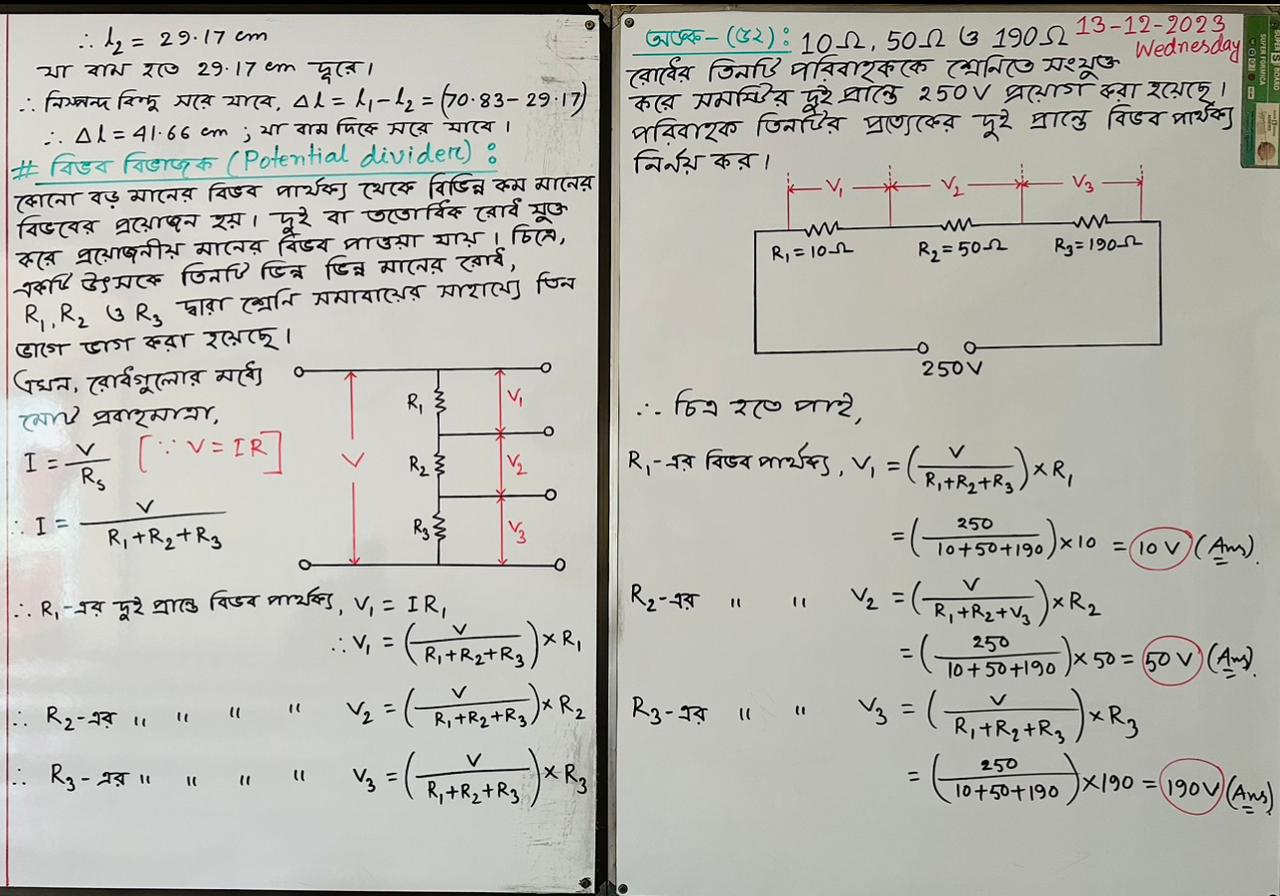 ∴ l₂ = 29.17 cm
যা বাম হতে 29.17 cm দূরে।
∴ নিস্পন্দ বিন্দু সরে যাবে, Δl = l₁-l₂ = (70.83-29.17)
∴ Δl = 41.66 cm ; যা বাম দিকে সরে যাবে।
# বিভব বিভাজক (Potential divider) :
কোনো বড় মানের বিভব পার্থক্য থেকে বিভিন্ন কম মানের
বিভবের প্রয়োজন হয়। দুই বা ততোধিক রোধ যুক্ত
করে প্রয়োজনীয় মানের বিভব পাওয়া যায়। চিত্রে,
একটি উৎসকে তিনটি ভিন্ন ভিন্ন মানের রোধ,
R₁, R₂ ও R₃ দ্বারা শ্রেনি সমাবায়ের সাহায্যে তিন
ভাগে ভাগ করা হয়েছে।
এখন, রোধগুলোর মধ্যে
মোট প্রবাহমাত্রা,
I = V/Rₛ [∵ V = IR]
∴ I = V/(R₁+R₂+R₃)
R₁ V₁
V R₂ V₂
R₃ V₃
∴ R₁-এর দুই প্রান্তে বিভব পার্থক্য, V₁ = IR₁
∴ V₁ = (V/(R₁+R₂+R₃)) × R₁
∴ R₂-এর " " " " V₂ = (V/(R₁+R₂+R₃)) × R₂
∴ R₃-এর " " " " V₃ = (V/(R₁+R₂+R₃)) × R₃
13-12-2023
Wednesday
অংক-(৫২) : 10Ω, 50Ω ও 190Ω
রোধের তিনটি পরিবাহককে শ্রেনিতে সংযুক্ত
করে সমষ্টির দুই প্রান্তে 250V প্রয়োগ করা হয়েছে।
পরিবাহক তিনটির প্রত্যেকের দুই প্রান্তে বিভব পার্থক্য
নির্নয় কর।
V₁ V₂ V₃
R₁=10Ω R₂=50Ω R₃=190Ω
250V
∴ চিত্র হতে পাই,
R₁-এর বিভব পার্থক্য, V₁ = (V/(R₁+R₂+R₃)) × R₁
= (250/(10+50+190)) × 10 = 10 V (Ans).
R₂-এর " " V₂ = (V/(R₁+R₂+V₃)) × R₂
= (250/(10+50+190)) × 50 = 50 V (Ans).
R₃-এর " " V₃ = (V/(R₁+R₂+R₃)) × R₃
= (250/(10+50+190)) × 190 = 190V (Ans)
SUPER FORMICA